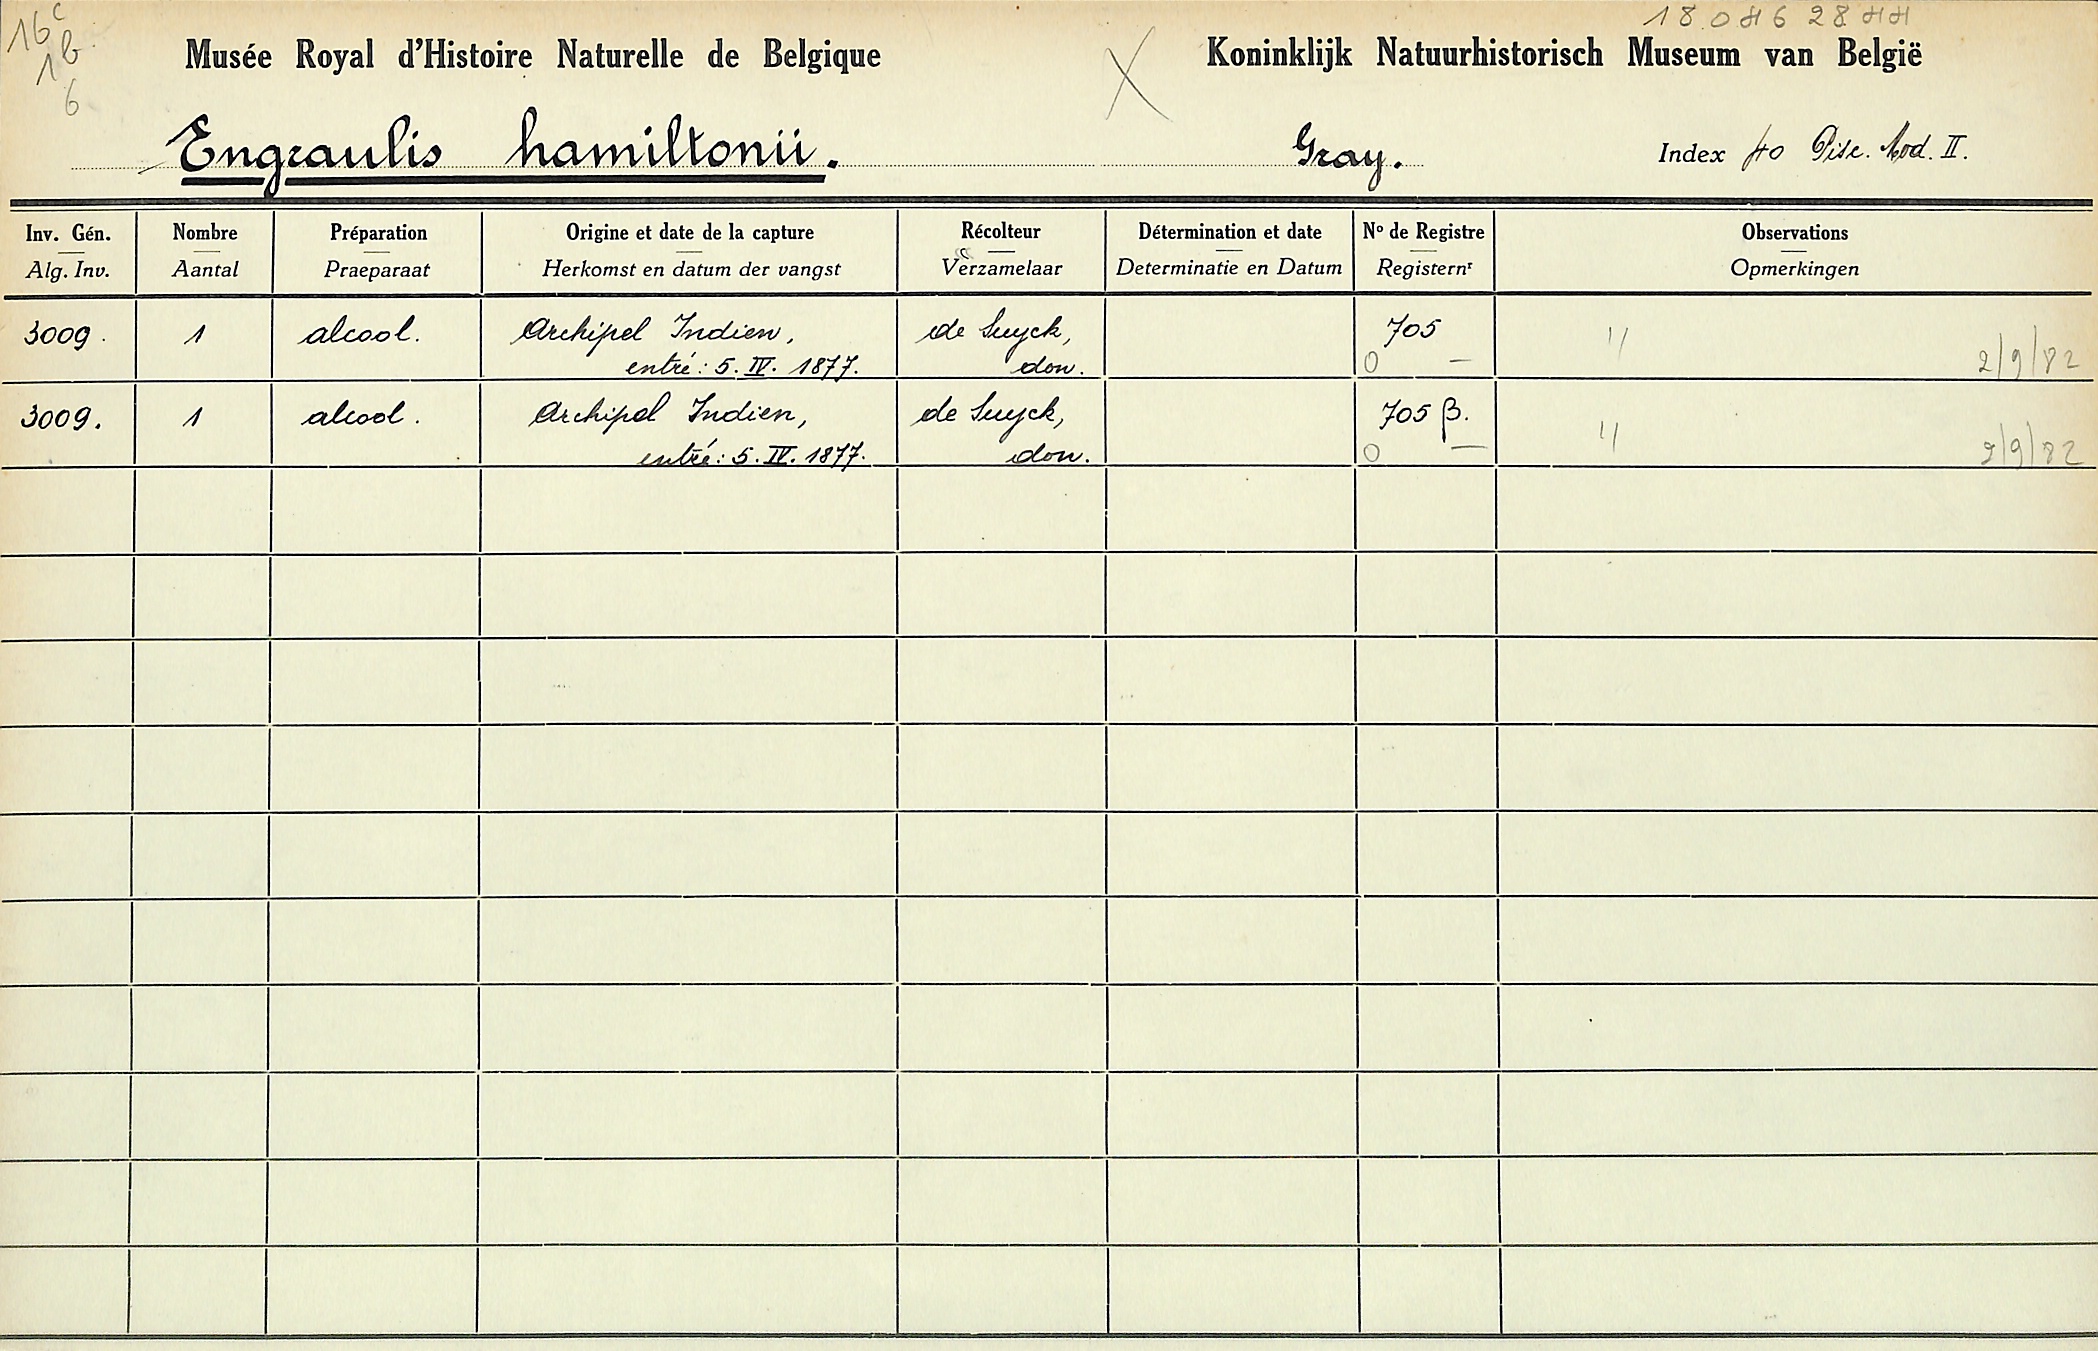 16c
1b
6
Musée Royal d'Histoire Naturelle de Belgique
X
Koninklijk Natuurhistorisch Museum van België
Engraulis hamiltonii.
Gray.
Index 40 Pisc. Mod. II.
Inv. Gén. Nombre Préparation Origine et date de la capture Récolteur Détermination et date No de Registre Observations
Alg. Inv. Aantal Praeparaat Herkomst en datum der vangst Verzamelaar Determinatie en Datum Registernr Opmerkingen
3009. 1 alcool. Archipel Indien, de Suyck, 705 "
entré: 5. IV. 1877. don. 0 — 2/9/82
3009. 1 alcool. Archipel Indien, de Suyck, 705 β. "
entré: 5. IV. 1877. don. 0 — 2/9/82